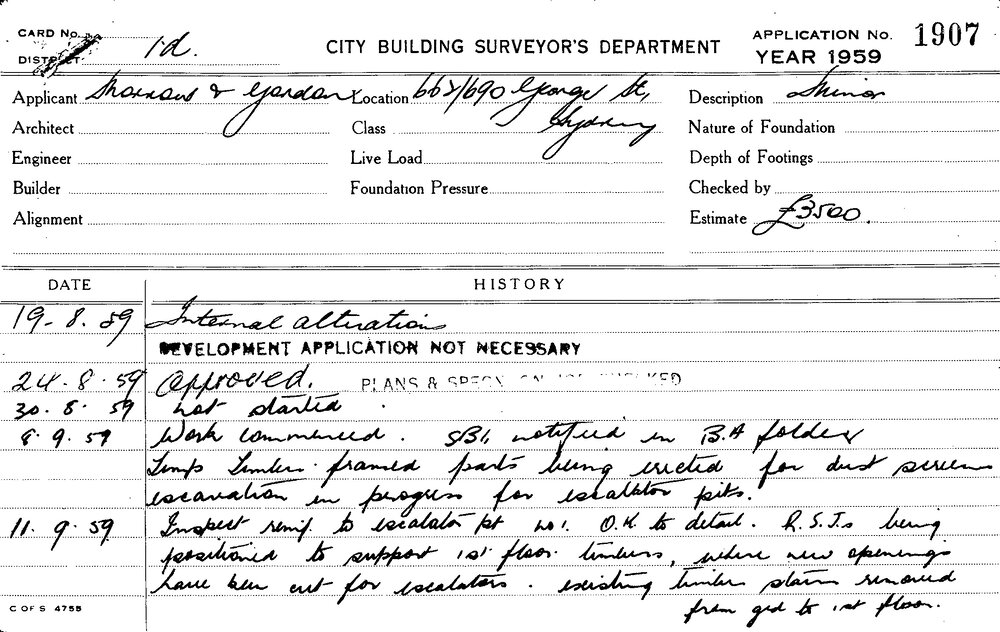 CARD No.
DISTRICT 1d.
CITY BUILDING SURVEYOR'S DEPARTMENT
APPLICATION No. 1907
YEAR 1959
Applicant & Gordon Location 662/690 George St, Description Minor
Sydney
Architect Class Nature of Foundation
Engineer Live Load Depth of Footings
Builder Foundation Pressure Checked by
Alignment Estimate £3500.
DATE HISTORY
19-8.59 Internal alterations
DEVELOPMENT APPLICATION NOT NECESSARY
24.8.59 Approved. PLANS & SPECN
30.8.59 not started
8.9.59 Work commenced. SB1, notified in B.A folder
Timber framed parts being erected for dust screens
excavation in progress for escalator pits.
11.9.59 Inspect reinf. to escalator pit No 1. O.K to detail. R.S.Js being
positioned to support 1st floor timbers, where new openings
have been cut for escalators. existing timber stairs removed
from grd to 1st floor.
C OF S 4755